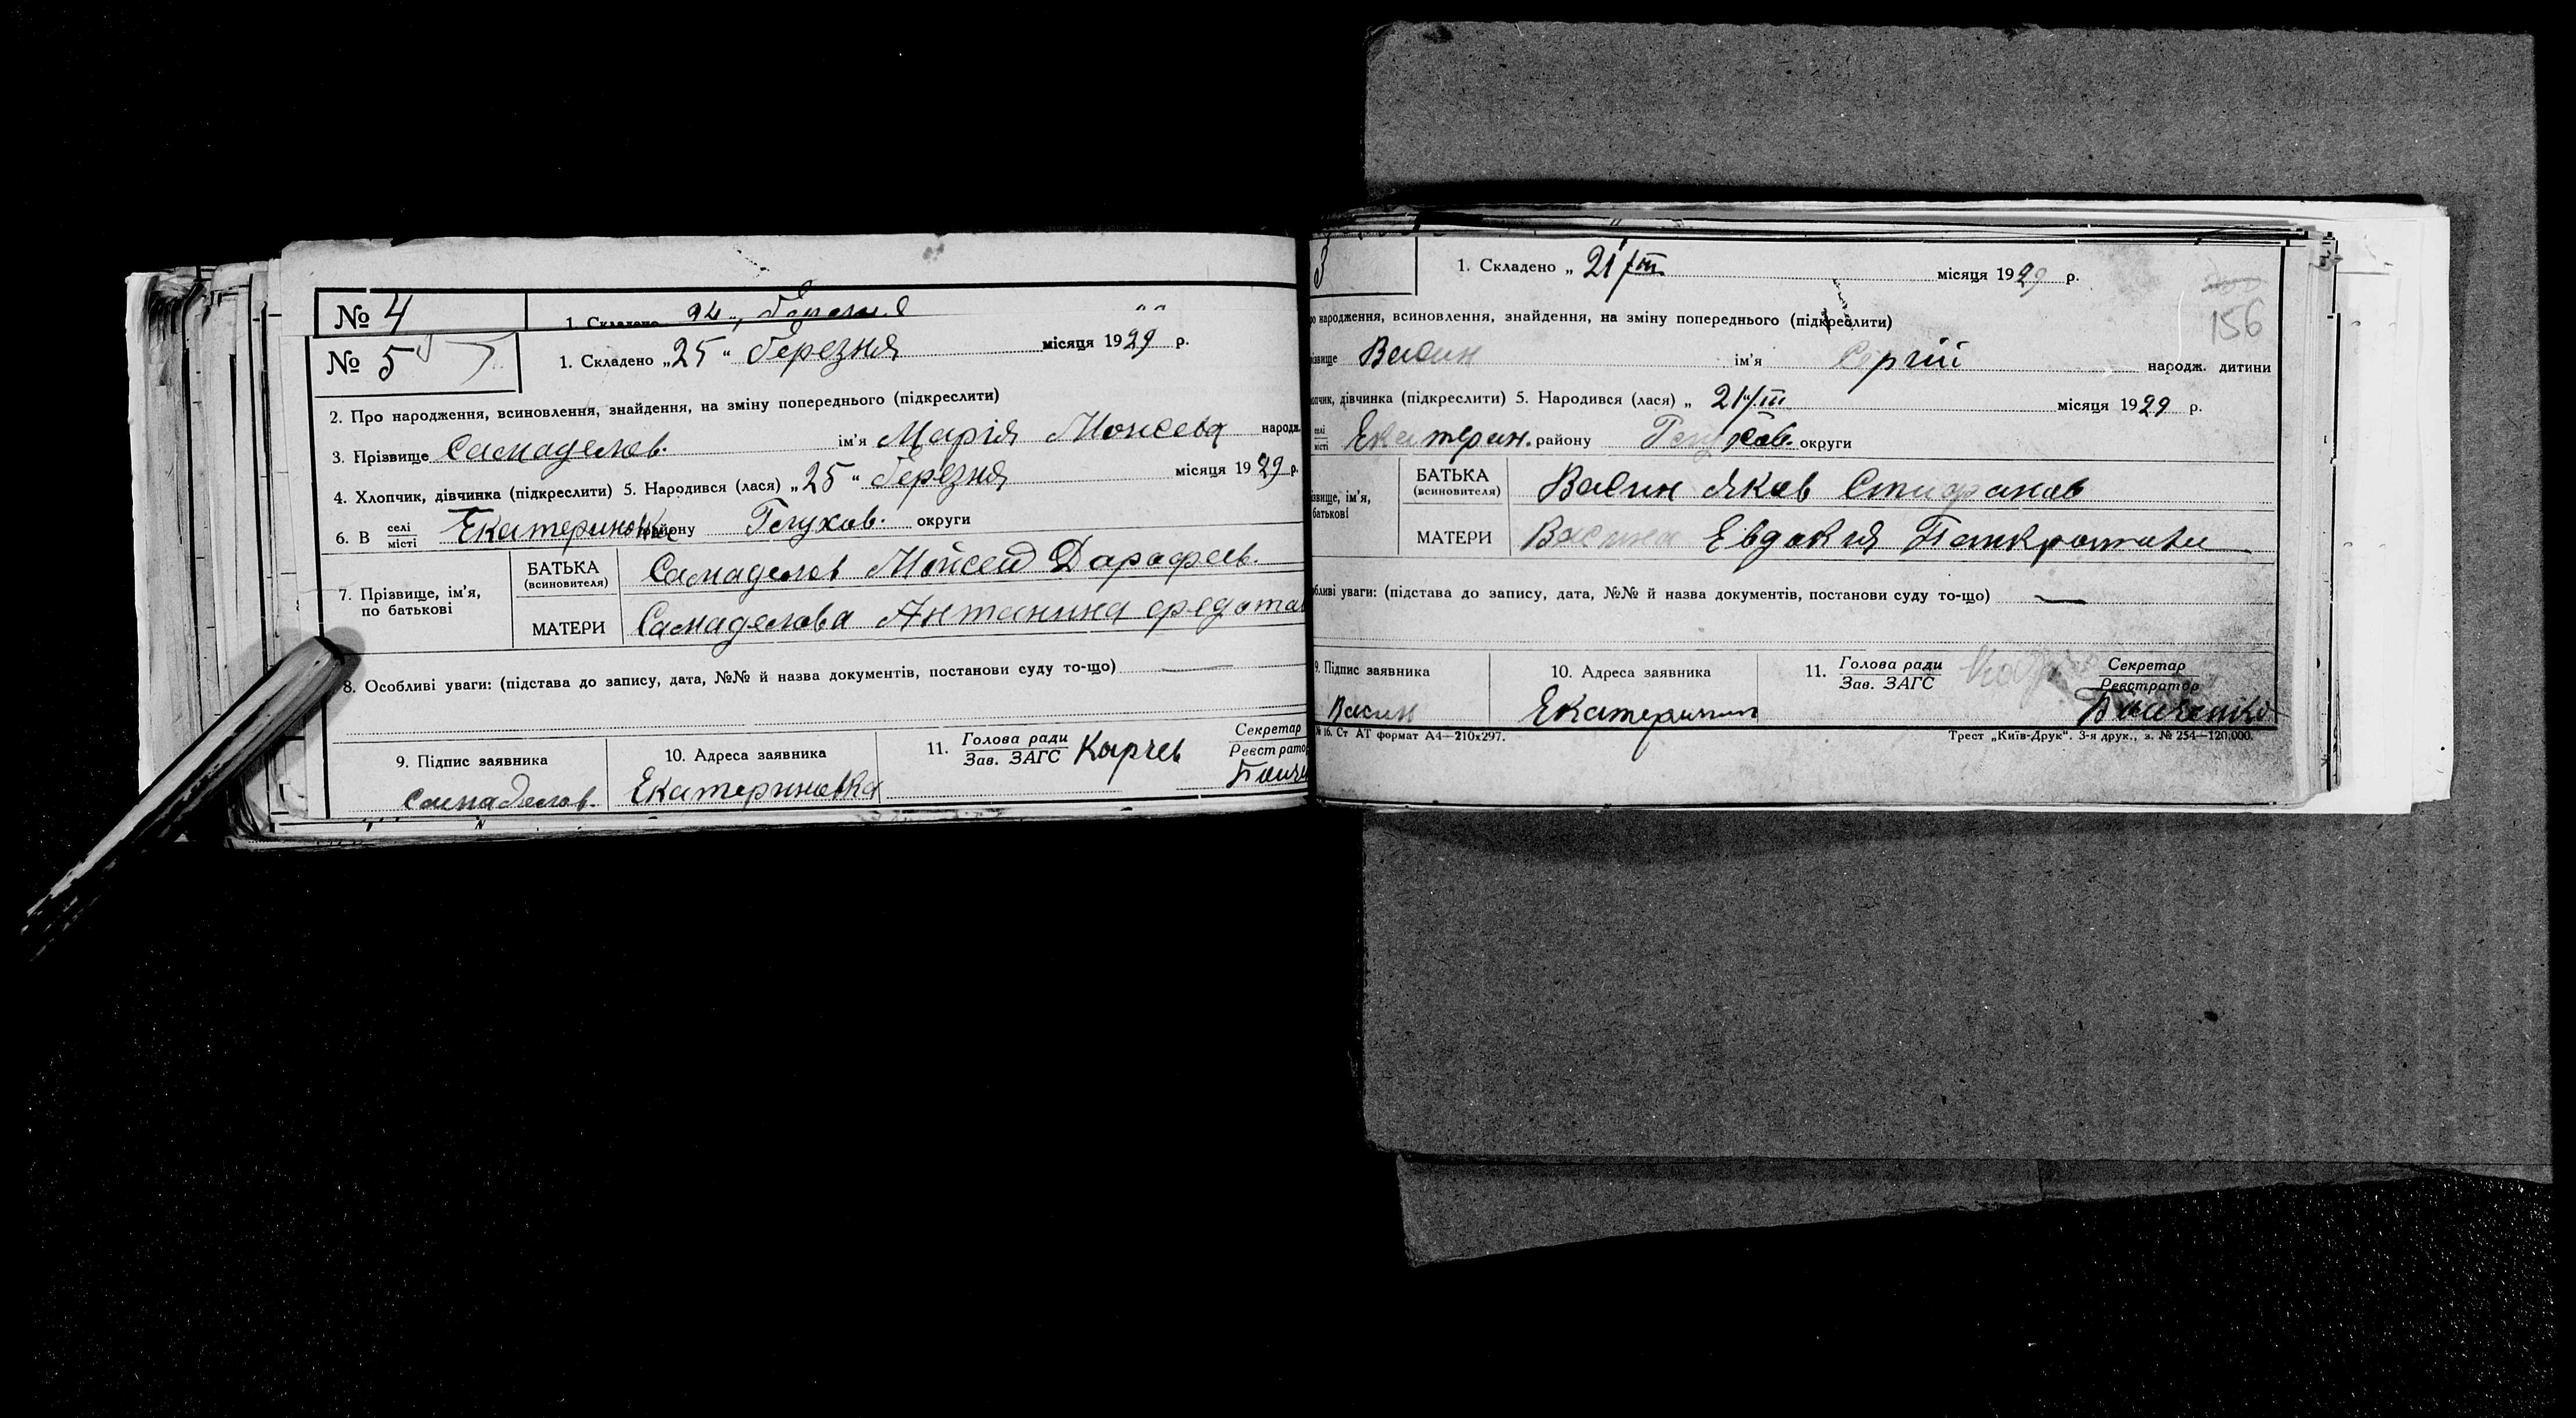 № 4
1. Складено 24 „ березня
№ 5
1. Складено „25“ березня місяця 1929 р.
2. Про народження, всиновлення, знайдення, на зміну попереднього (підкреслити)
3. Прізвище Самаделов. ім'я Марія Моисева народж.
4. Хлопчик, дівчинка (підкреслити) 5. Народився (лася) „25“ березня місяця 1929 р.
6. В селі/місті Екатериновка району Глухов. округи
7. Прізвище, ім'я, по батькові
БАТЬКА (всиновителя) Самаделов Мойсей Дарафеев.
МАТЕРИ Самаделова Антанина
8. Особливі уваги: (підстава до запису, дата, №№ й назва документів, постанови суду то-що) —
9. Підпис заявника
Самаделов.
10. Адреса заявника
Екатериновка
11. Голова ради
Зав. ЗАГС Карчев
Секретар
Реєстратор
3
1. Складено „ 21/III місяця 1929 р.
156
народження, всиновлення, знайдення, на зміну попереднього (підкреслити)
ізвище Васин ім'я Сергій народж. дитини
опчик, дівчинка (підкреслити) 5. Народився (лася) „ 21/III місяця 1929 р.
селі/місті Екатерин. району Глухов. округи
звище, ім'я,
батькові
БАТЬКА (всиновителя) Васин Яков Стифанов
МАТЕРИ Васина Евдокия Панкратови
бливі уваги: (підстава до запису, дата, №№ й назва документів, постанови суду то-що) —
9. Підпис заявника
Васин
10. Адреса заявника
Екатеринин
11. Голова ради
Зав. ЗАГС
Секретар
Реєстратор
№ 16. Ст АТ формат А4—210х297.
Трест „Київ-Друк“. 3-я друк., з. № 254—120.000.